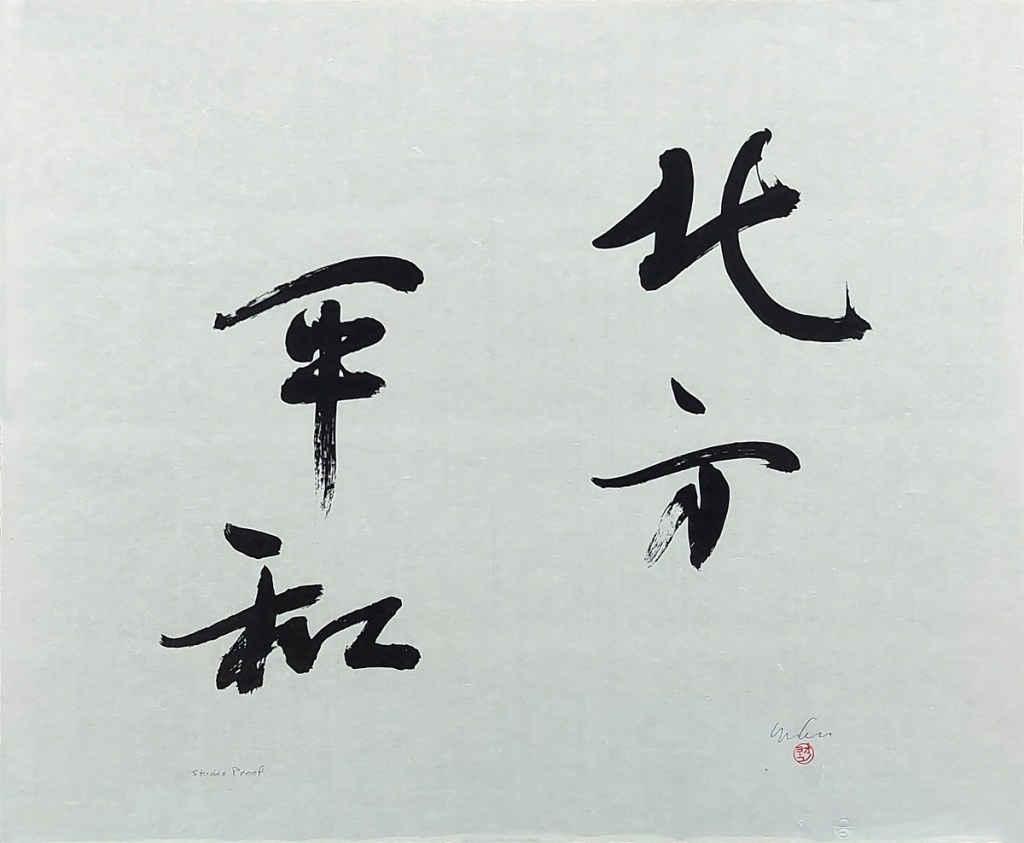 北方
平和
Studio Proof